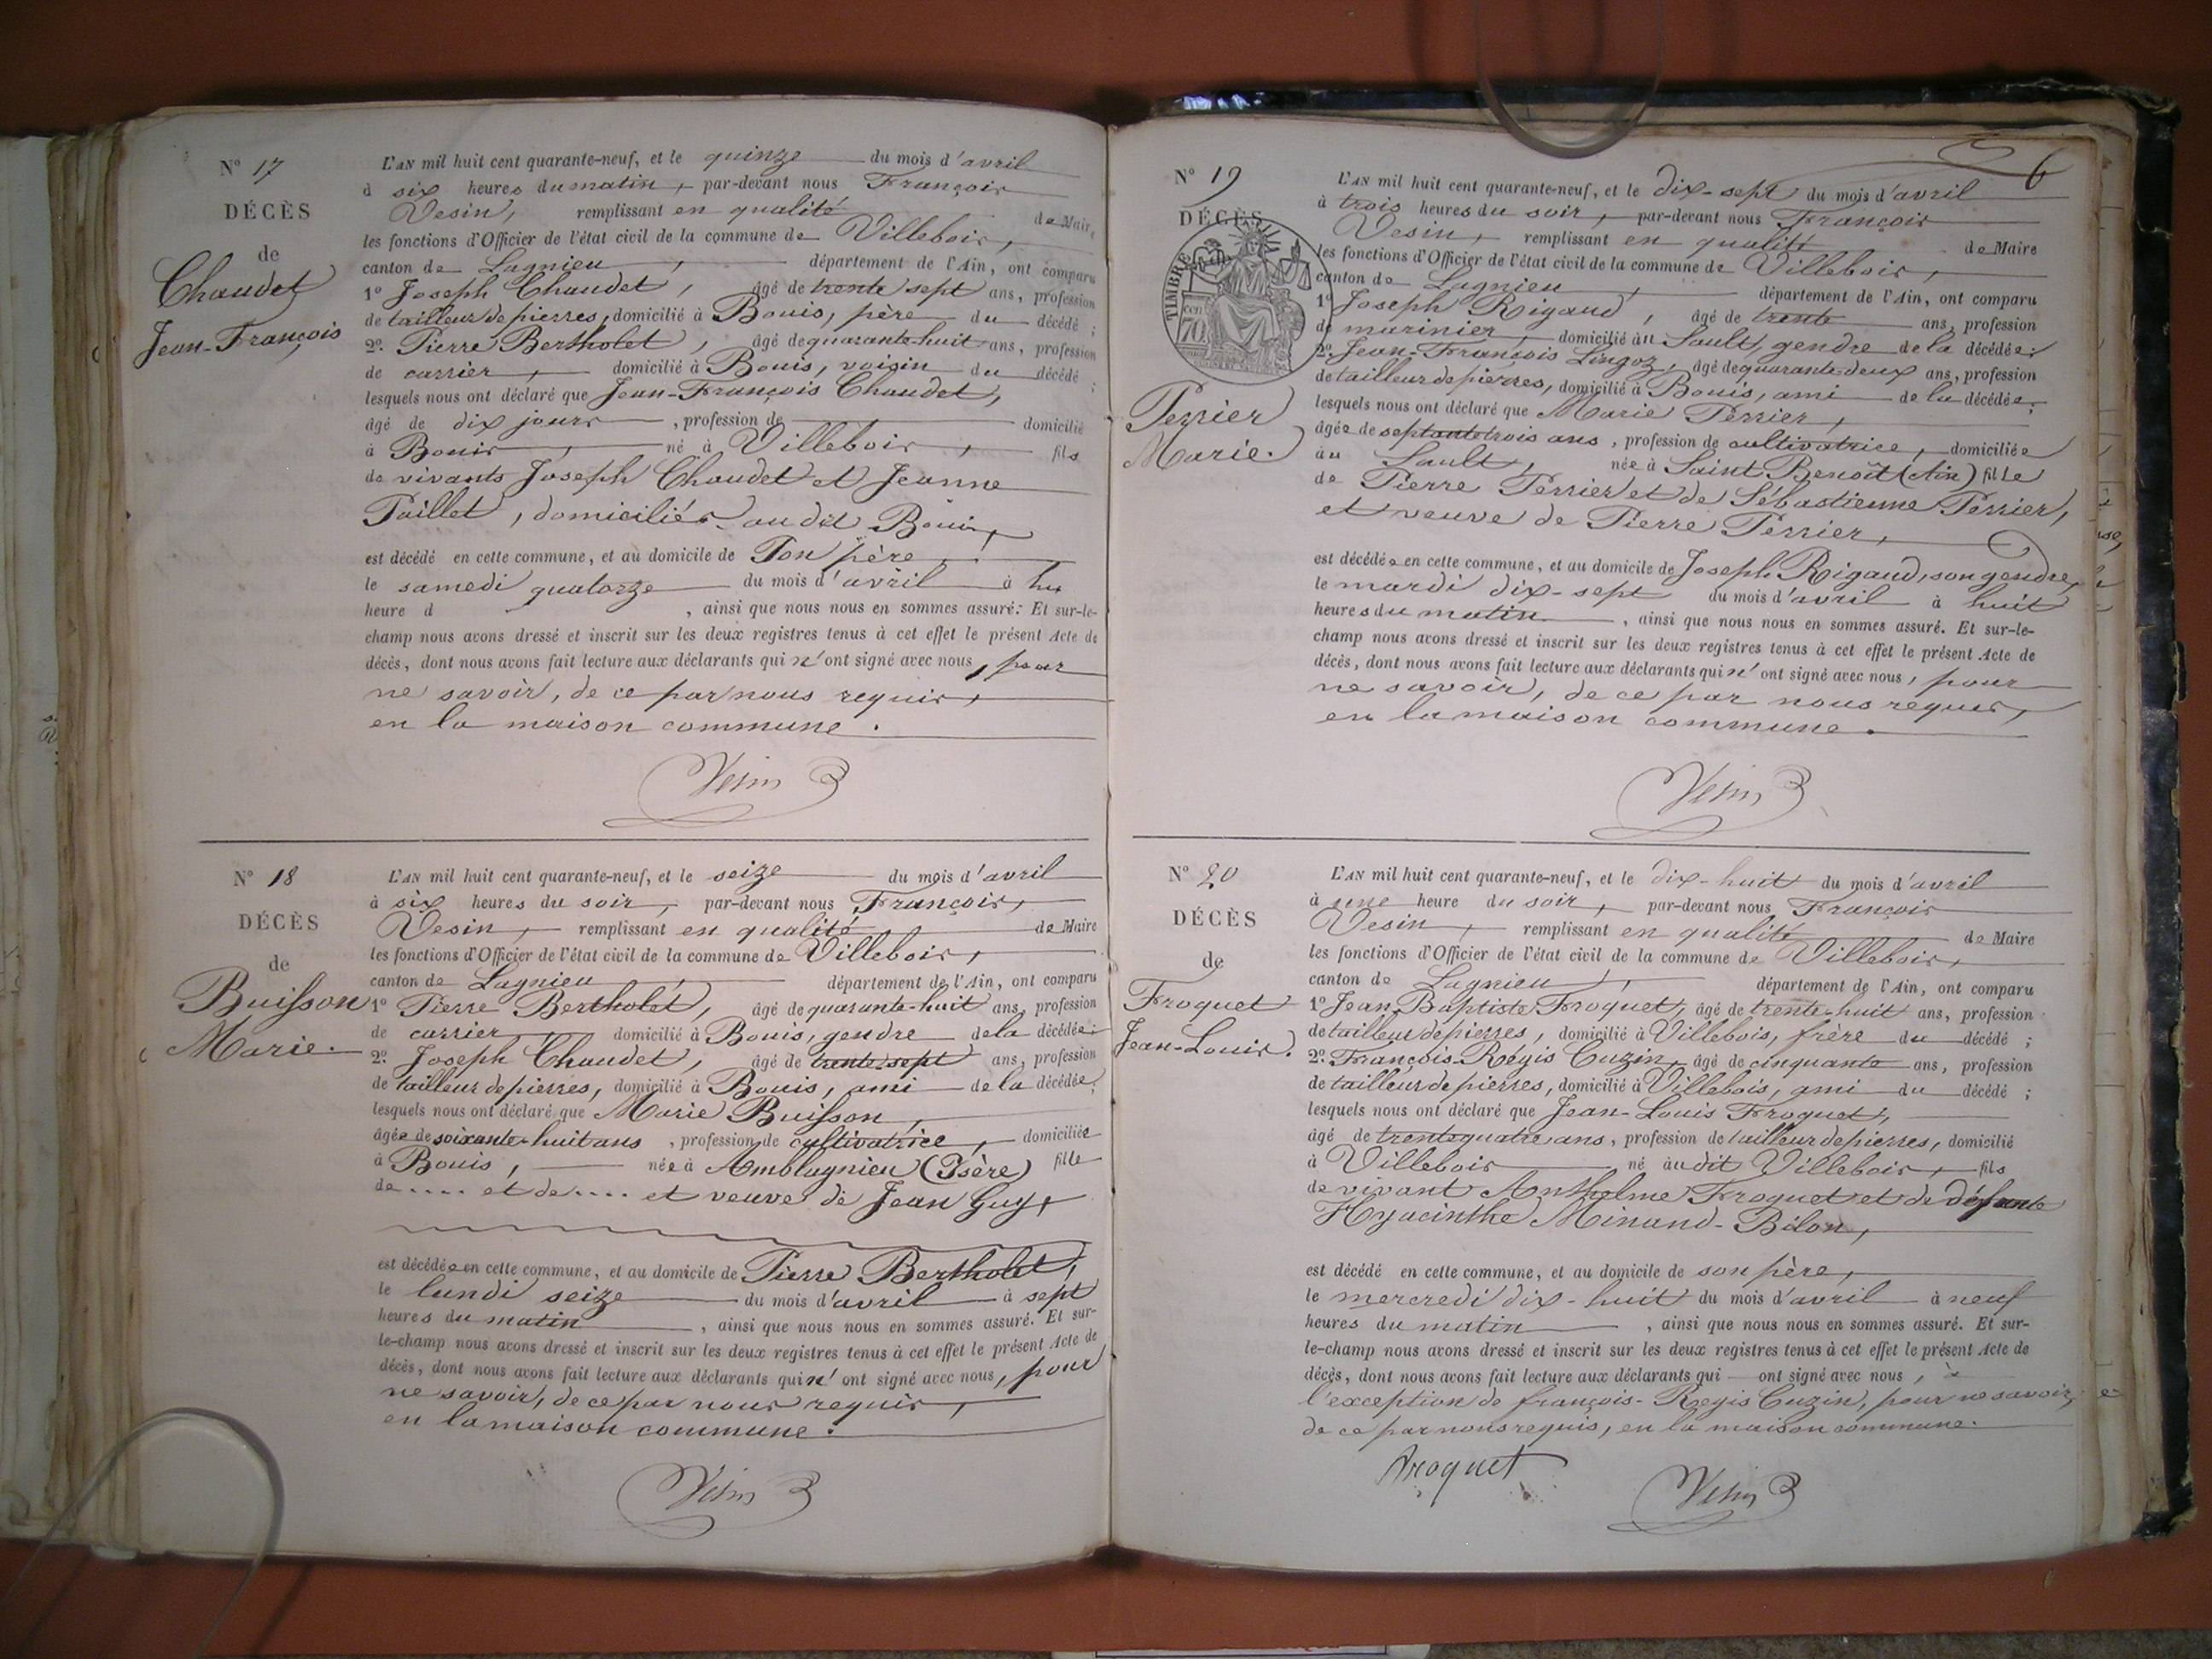 N° 17
DÉCÈS
de
Chaudet
Jean-François
L'AN mil huit cent quarante-neuf, et le quinze du mois d'avril
à six heures du matin, par-devant nous François
Vesin, remplissant en qualité de Maire,
les fonctions d'Officier de l'état civil de la commune de Villebois,
canton de Lagnieu, département de l'Ain, ont comparu
1° Joseph Chaudet, âgé de trente sept ans, profession
de tailleur de pierres, domicilié à Bouis, père du décédé ;
2° Pierre Bertholet, âgé de quarante-huit ans, profession
de carrier, domicilié à Bouis, voisin du décédé ;
lesquels nous ont déclaré que Jean-François Chaudet,
âgé de dix jours, profession de domicilié
à Bouis, né à Villebois, fils
de vivants Joseph Chaudet et Jeanne
Paillet, domiciliés au dit Bouis,
est décédé en cette commune, et au domicile de son père,
le samedi quatorze du mois d'avril à
heure d , ainsi que nous nous en sommes assuré. Et sur-le-
champ nous avons dressé et inscrit sur les deux registres tenus à cet effet le présent Acte de
décès, dont nous avons fait lecture aux déclarants qui n'ont signé avec nous, pour
ne savoir, de ce par nous requis,
en la maison commune.
Vesin
N° 18
DÉCÈS
de
Buisson
Marie.
L'AN mil huit cent quarante-neuf, et le seize du mois d'avril
à six heures du soir, par-devant nous François,
Vesin, remplissant en qualité de Maire
les fonctions d'Officier de l'état civil de la commune de Villebois,
canton de Lagnieu, département de l'Ain, ont comparu
1° Pierre Bertholet, âgé de quarante-huit ans, profession
de carrier, domicilié à Bouis, gendre de la décédée ;
2° Joseph Chaudet, âgé de trente-sept ans, profession
de tailleur de pierres, domicilié à Bouis, ami de la décédée ;
lesquels nous ont déclaré que Marie Buisson,
âgée de soixante-huit ans, profession de cultivatrice, domiciliée
à Bouis, née à Amblagnieu (Isère) fille
de .... et de .... et veuve de Jean Guy,
est décédée en cette commune, et au domicile de Pierre Bertholet,
le lundi seize du mois d'avril à sept
heures du matin, ainsi que nous nous en sommes assuré. Et sur-
le-champ nous avons dressé et inscrit sur les deux registres tenus à cet effet le présent Acte de
décès, dont nous avons fait lecture aux déclarants qui n'ont signé avec nous, pour
ne savoir, de ce par nous requis,
en la maison commune.
Vesin
6
N° 19
DÉCÈS
TIMBRE
70
Perrier
Marie.
L'AN mil huit cent quarante-neuf, et le dix-sept du mois d'avril
à trois heures du soir, par-devant nous François
Vesin, remplissant en qualité de Maire
les fonctions d'Officier de l'état civil de la commune de Villebois,
canton de Lagnieu, département de l'Ain, ont comparu
1° Joseph Rigaud, âgé de trente ans, profession
de marinier, domicilié au Sault, gendre de la décédée ;
2° Jean-François Lingoz, âgé de quarante-deux ans, profession
de tailleur de pierres, domicilié à Bouis, ami de la décédée ;
lesquels nous ont déclaré que Marie Perrier,
âgée de septante trois ans, profession de cultivatrice, domiciliée
au Sault, née à Saint Benoît (Ain) fille
de Pierre Perrier et de Sébastienne Perrier,
et veuve de Pierre Perrier,
est décédée en cette commune, et au domicile de Joseph Rigaud, son gendre,
le mardi dix-sept du mois d'avril à huit
heures du matin, ainsi que nous nous en sommes assuré. Et sur-le-
champ nous avons dressé et inscrit sur les deux registres tenus à cet effet le présent Acte de
décès, dont nous avons fait lecture aux déclarants qui n'ont signé avec nous, pour
ne savoir, de ce par nous requis,
en la maison commune.
Vesin
N° 20
DÉCÈS
de
Froquet
Jean-Louis.
L'AN mil huit cent quarante-neuf, et le dix-huit du mois d'avril
à une heure du soir, par-devant nous François
Vesin, remplissant en qualité de Maire
les fonctions d'Officier de l'état civil de la commune de Villebois,
canton de Lagnieu, département de l'Ain, ont comparu
1° Jean Baptiste Froquet, âgé de trente-huit ans, profession
de tailleur de pierres, domicilié à Villebois, frère du décédé ;
2° François-Régis Cuzin, âgé de cinquante ans, profession
de tailleur de pierres, domicilié à Villebois, ami du décédé ;
lesquels nous ont déclaré que Jean-Louis Froquet,
âgé de trente quatre ans, profession de tailleur de pierres, domicilié
à Villebois né au dit Villebois, fils
de vivant Anthelme Froquet et de défunte
Hyacinthe Minand-Bélon,
est décédé en cette commune, et au domicile de son père,
le mercredi dix-huit du mois d'avril à neuf
heures du matin, ainsi que nous nous en sommes assuré. Et sur-
le-champ nous avons dressé et inscrit sur les deux registres tenus à cet effet le présent Acte de
décès, dont nous avons fait lecture aux déclarants qui ont signé avec nous, à
l'exception de françois-Regis Cuzin, pour ne savoir,
de ce par nous requis, en la maison commune.
Froquet
Vesin